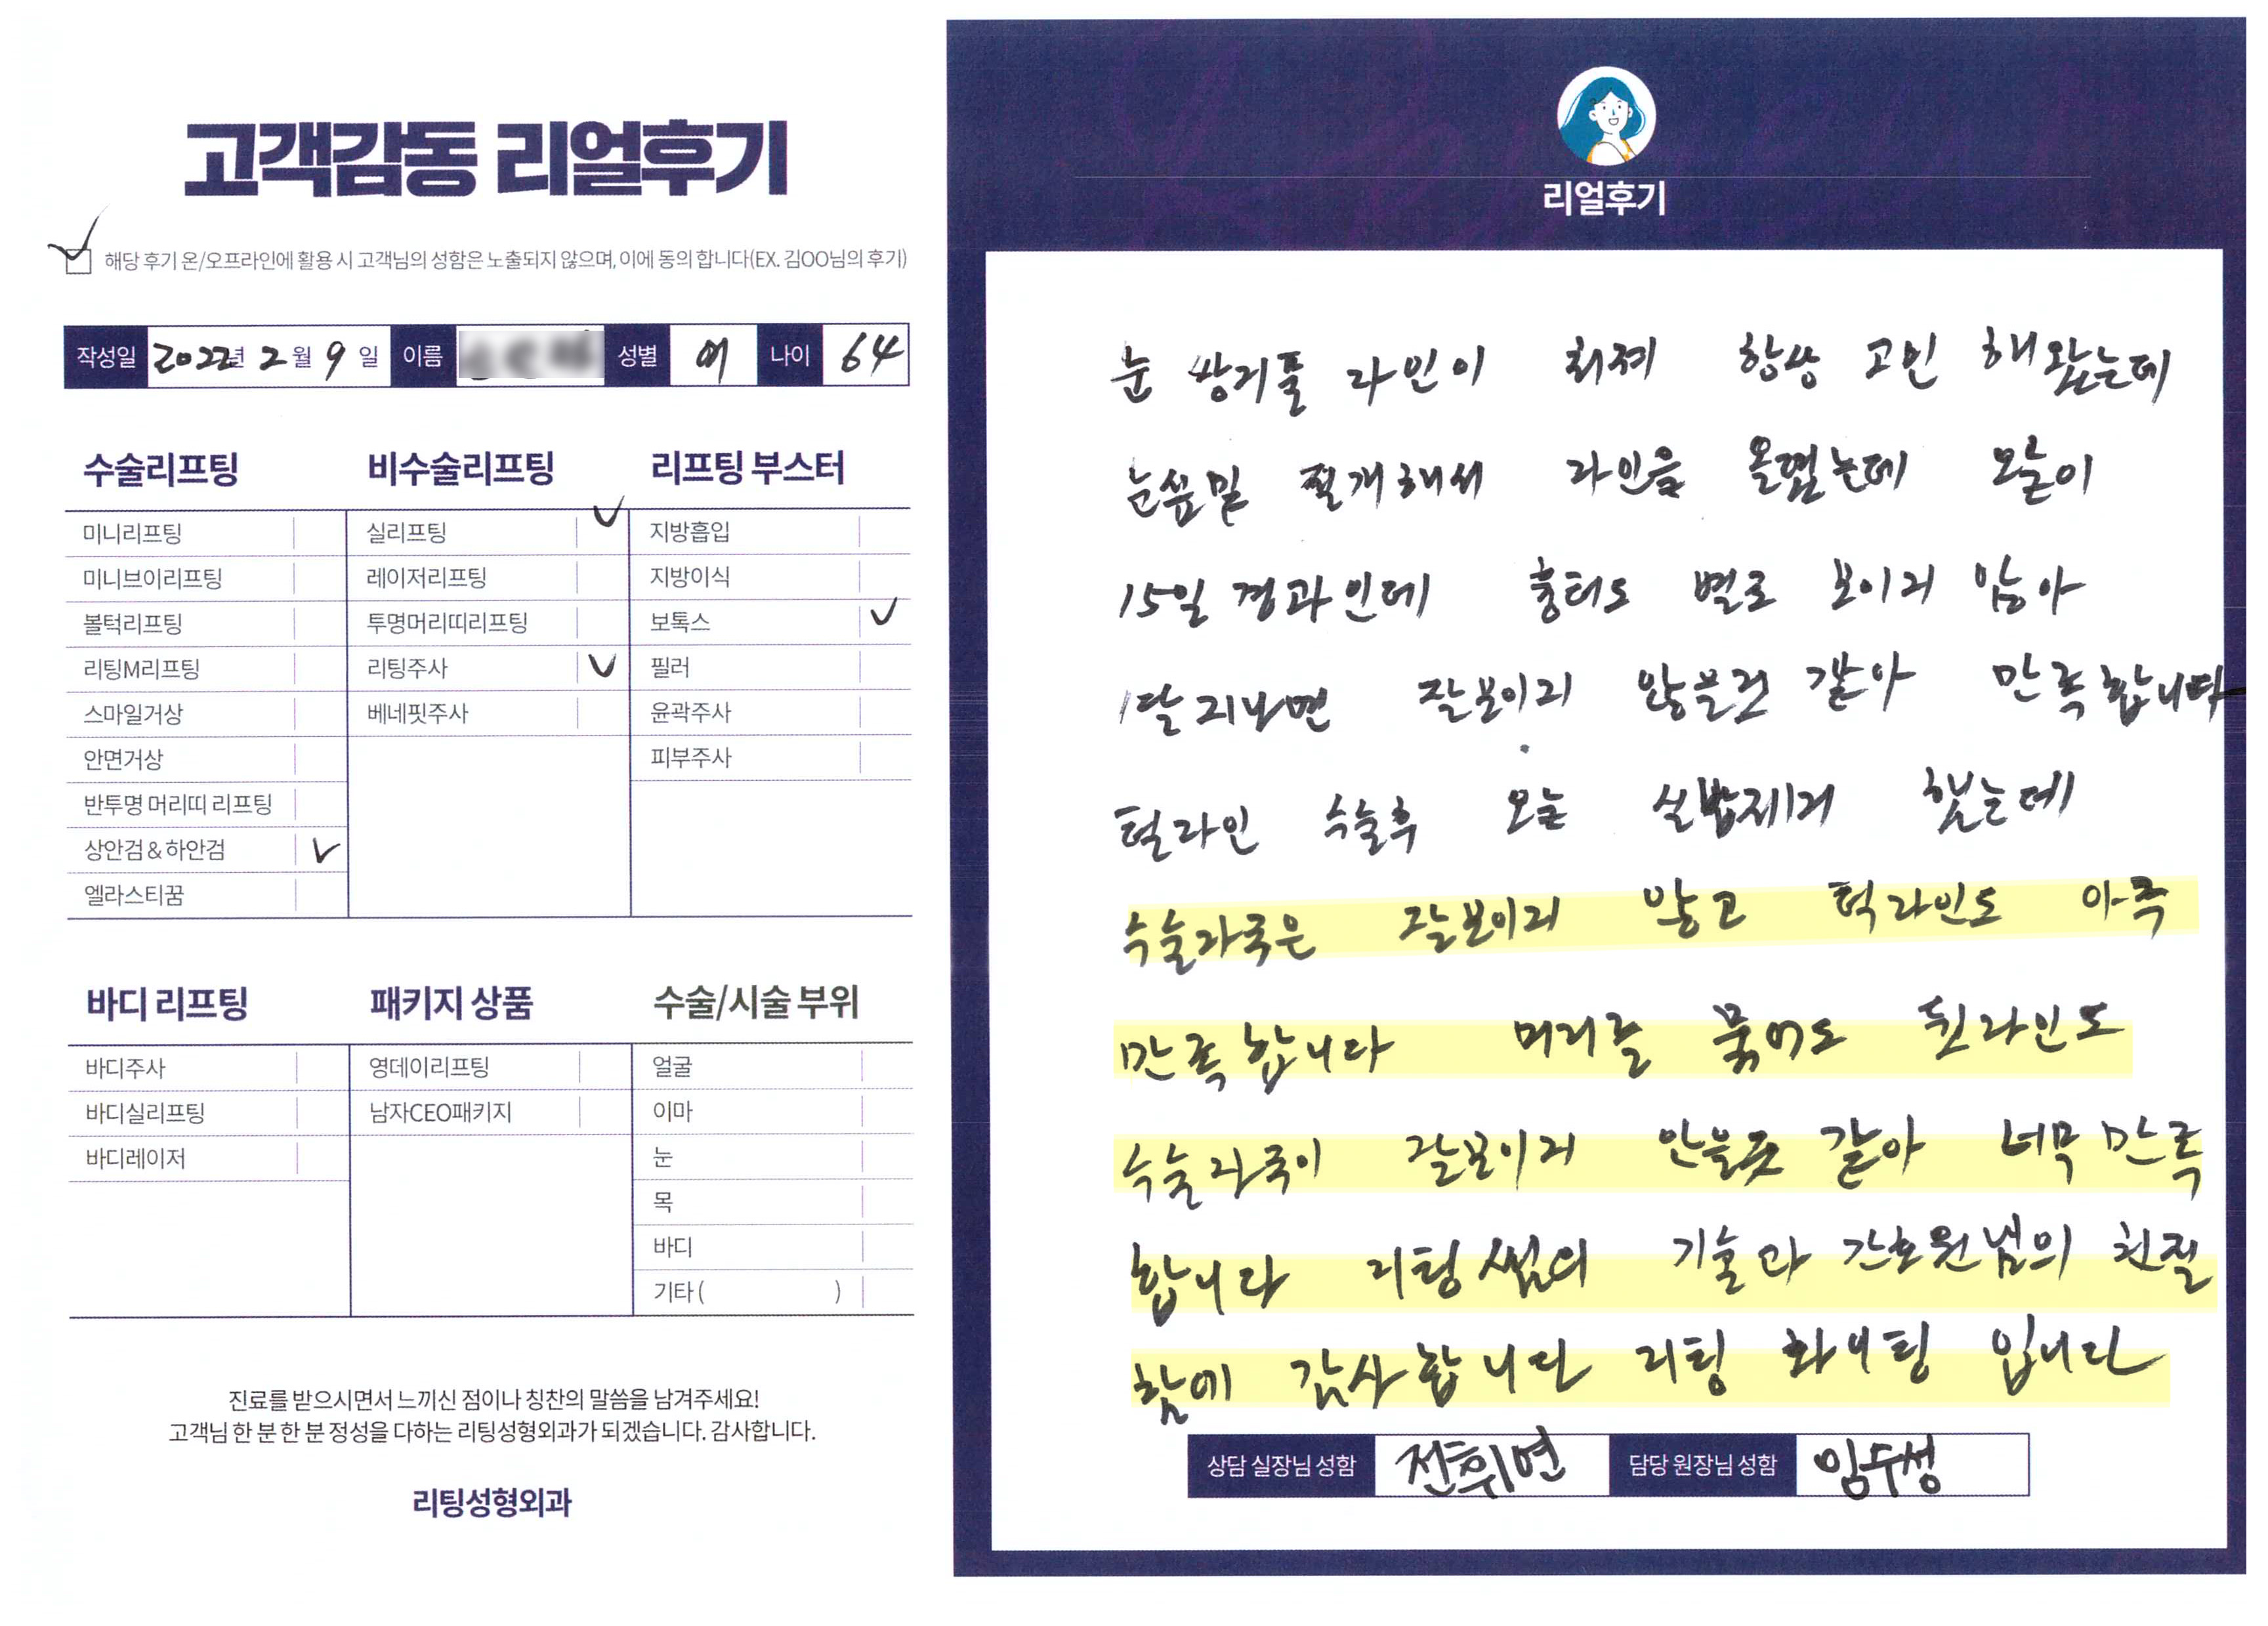 고객감동 리얼후기
해당 후기 온/오프라인에 활용 시 고객님의 성함은 노출되지 않으며, 이에 동의 합니다(EX. 김OO님의 후기)
작성일 2022년 2월 9일 이름 성별 여 나이 64
수술리프팅
미니리프팅
미니브이리프팅
볼턱리프팅
리팅M리프팅
스마일거상
안면거상
반투명 머리띠 리프팅
상안검 & 하안검
엘라스티꿈
비수술리프팅
실리프팅
레이저리프팅
투명머리띠리프팅
리팅주사
베네핏주사
리프팅 부스터
지방흡입
지방이식
보톡스
필러
윤곽주사
피부주사
바디 리프팅
바디주사
바디실리프팅
바디레이저
패키지 상품
영데이리프팅
남자CEO패키지
수술/시술 부위
얼굴
이마
눈
목
바디
기타 ( )
진료를 받으시면서 느끼신 점이나 칭찬의 말씀을 남겨주세요!
고객님 한 분 한 분 정성을 다하는 리팅성형외과가 되겠습니다. 감사합니다.
리팅성형외과
리얼후기
눈 쌍거풀 라인이 쳐져 항상 고민 해왔는데
눈썹밑 절개해서 라인을 올렸는데 오늘이
15일 경과인데 흉터도 별로 보이지 않아
1달 지나면 잘보이지 않을것 같아 만족합니다
턱라인 수술후 오늘 실밥제거 했는데
수술자국은 잘보이지 않고 턱라인도 아주
만족합니다 머리를 묶어도 뒷라인도
수술자국이 잘보이지 안을듯 같아 너무 만족
합니다 리팅썜의 기술과 간호원님의 친절
함에 감사합니다 리팅 화이팅 입니다
상담 실장님 성함 전휘연 담당 원장님 성함 임수성